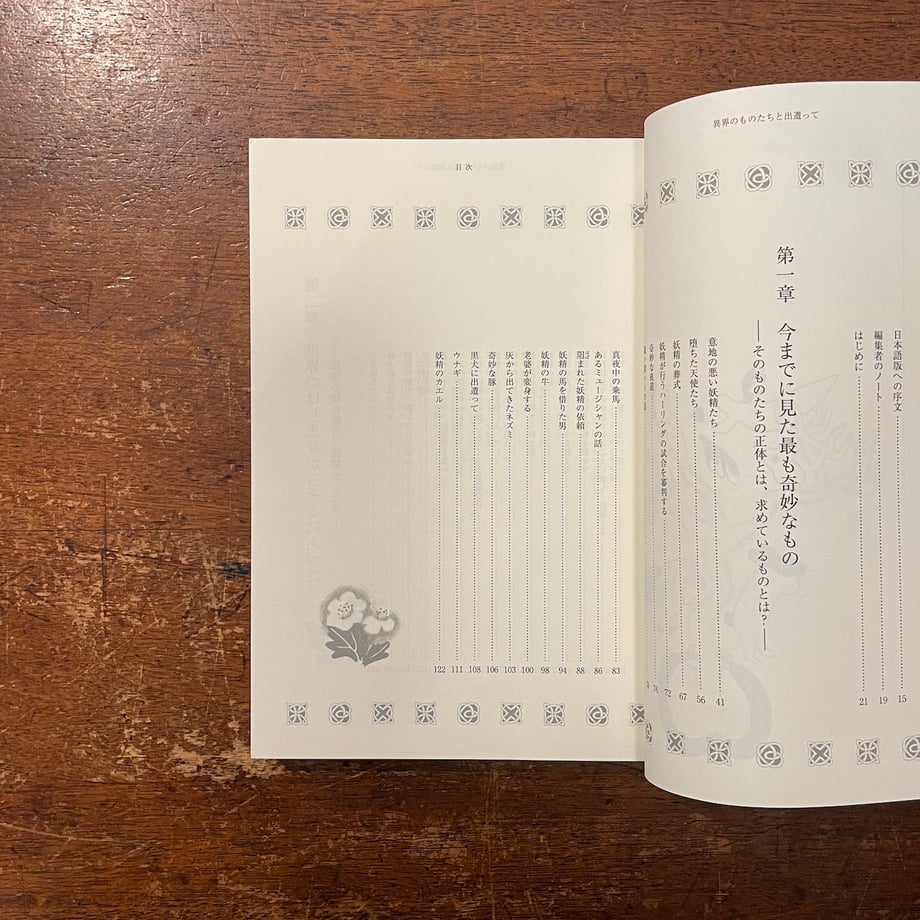 異界のものたちと出遭って
日本語版への序文 15
編集者のノート 19
はじめに 21
第一章 今までに見た最も奇妙なもの
――そのものたちの正体とは、求めているものとは?――
意地の悪い妖精たち 41
堕ちた天使たち 56
妖精の葬式 67
妖精が行うハーリングの試合を審判する 72
奇妙な夜道 76
目次
真夜中の乗馬 83
あるミュージシャンの話 86
阻まれた妖精の依頼 88
妖精の馬を借りた男 94
妖精の牛 98
老婆が変身する 100
灰から出てきたネズミ 103
奇妙な豚 106
黒犬に出遭って 108
ウナギ 111
妖精のカエル 122